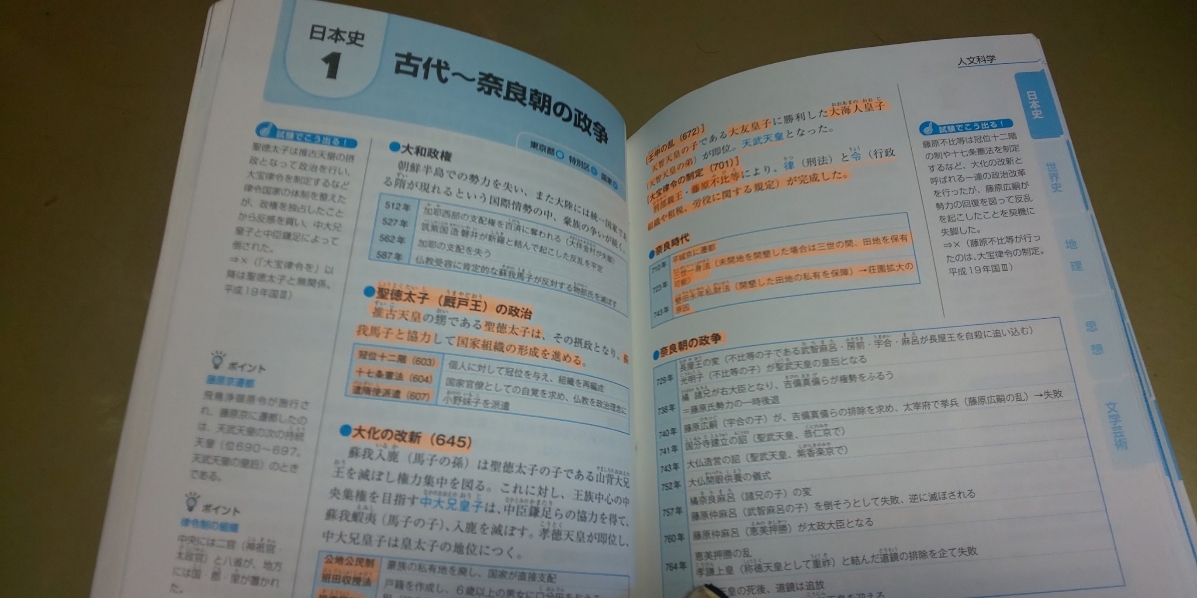 日本史
1
古代~奈良朝の政争
東京都 特別区 国家
試験でこう出る!
聖徳太子は推古天皇の摂
政となって政治を行い、
大宝律令を制定するなど
律令国家の体制を整えた
が、政権を独占したこと
から反感を買い、中大兄
皇子と中臣鎌足によって
倒された。
⇒×(「大宝律令を」以
降は聖徳太子と無関係。
平成19年国Ⅱ)
ポイント
藤原京遷都
飛鳥浄御原令が施行さ
れ、藤原京に遷都したの
は、天武天皇の次の持統
天皇(位690~697。
天武天皇の皇后)のとき
である。
ポイント
律令制の組織
中央には二官(神祇官・
太政官)と八省が、地方
には国・郡・里が置かれ
た。
●大和政権
朝鮮半島での勢力を失い、また大陸には統一国家であ
る隋が現れるという国際情勢の中、豪族の争いが続く。
512年 加耶西部の支配権を百済に奪われる(大伴金村が失脚)
527年 筑紫国造磐井が新羅と結んで起こした反乱を平定
562年 加耶の支配を失う
587年 仏教受容に肯定的な蘇我馬子が反対する物部氏を滅ぼす
●聖徳太子(厩戸王)の政治
推古天皇の甥である聖徳太子は、その摂政となり、蘇
我馬子と協力して国家組織の形成を進める。
冠位十二階(603) 個人に対して冠位を与え、組織を再編成
十七条憲法(604) 国家官僚としての自覚を求め、仏教を政治理念に
遣隋使派遣(607) 小野妹子を派遣
●大化の改新(645)
蘇我入鹿(馬子の孫)は聖徳太子の子である山背大兄
王を滅ぼし権力集中を図る。これに対し、王族中心の中
央集権を目指す中大兄皇子は、中臣鎌足らの協力を得て、
蘇我蝦夷(馬子の子)、入鹿を滅ぼす。孝徳天皇が即位し、
中大兄皇子は皇太子の地位につく。
公地公民制 豪族の私有地を廃し、国家が直接支配
班田収授法 戸籍を作成し、6歳以上の男女に口分田を
人文科学
[壬申の乱(672)]
天智天皇の子である大友皇子に勝利した大海人皇子
(天智天皇の弟)が即位。天武天皇となった。
[大宝律令の制定(701)]
刑部親王・藤原不比等により、律(刑法)と令(行政
組織や租税、労役に関する規定)が完成した。
●奈良時代
710年 平城京に遷都
723年 三世一身法(未開地を開墾した場合は三世の間、田地を保有
可能)
743年 墾田永年私財法(開墾した田地の私有を保障)→荘園拡大の
原因
●奈良朝の政争
729年 長屋王の変(不比等の子である武智麻呂・房前・宇合・麻呂が長屋王を自殺に追い込む)
光明子(不比等の子)が聖武天皇の皇后となる
738年 橘諸兄が右大臣となり、吉備真備らが権勢をふるう
=藤原氏勢力の一時後退
740年 藤原広嗣(宇合の子)が、吉備真備らの排除を求め、太宰府で挙兵(藤原広嗣の乱)→失敗
741年 国分寺建立の詔(聖武天皇、恭仁京で)
743年 大仏造営の詔(聖武天皇、紫香楽京で)
752年 大仏開眼供養の儀式
757年 橘奈良麻呂(諸兄の子)の変
藤原仲麻呂(武智麻呂の子)を倒そうとして失敗、逆に滅ぼされる
760年 藤原仲麻呂(恵美押勝)が太政大臣となる
764年 恵美押勝の乱
孝謙上皇(称徳天皇として重祚)と結んだ道鏡の排除を企て失敗
皇の死後、道鏡は追放
試験でこう出る!
藤原不比等は冠位十二階
の制や十七条憲法を制定
するなど、大化の改新と
呼ばれる一連の政治改革
を行ったが、藤原広嗣が
勢力の回復を図って反乱
を起こしたことを契機に
失脚した。
⇒×(藤原不比等が行っ
たのは、大宝律令の制定。
平成19年国Ⅱ)
日本史
世界史
地理
思想
文学芸術